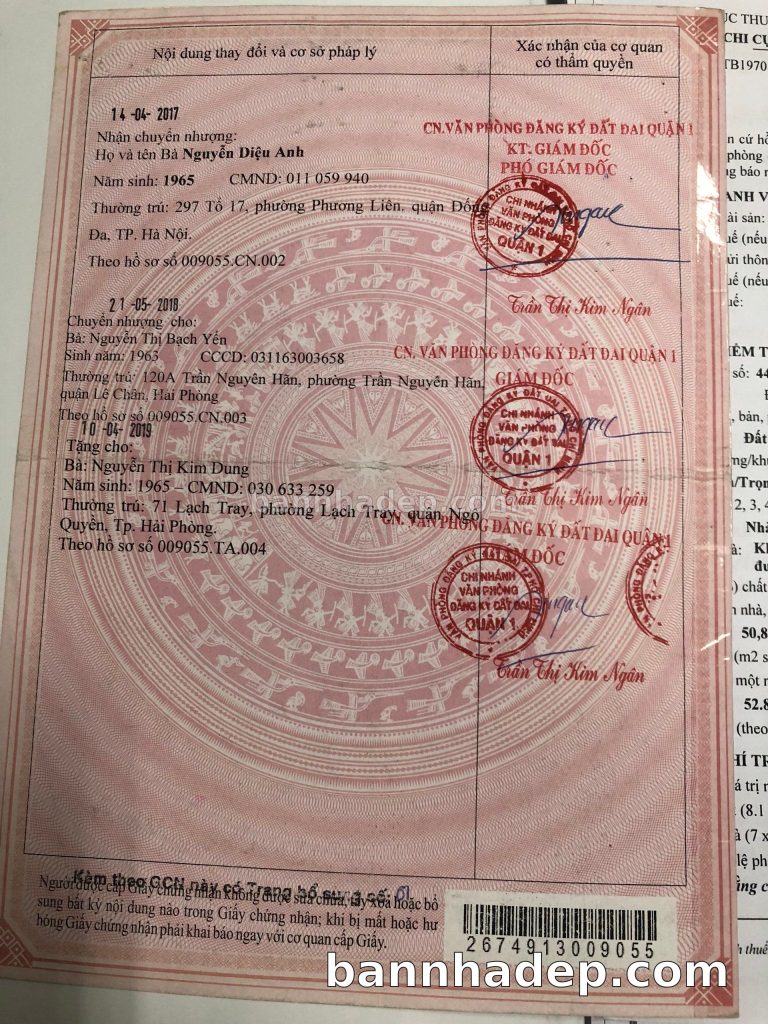 Nội dung thay đổi và cơ sở pháp lý
Xác nhận của cơ quan
có thẩm quyền
14-04-2017
Nhận chuyển nhượng:
Họ và tên Bà Nguyễn Diệu Anh
Năm sinh: 1965 CMND: 011 059 940
Thường trú: 297 Tổ 17, phường Phương Liên. quận Đống
Đa, TP. Hà Nội.
Theo hồ sơ số 009055.CN.002
CN.VĂN PHÒNG ĐĂNG KÝ ĐẤT ĐAI QUẬN 1
KT. GIÁM ĐỐC
PHÓ GIÁM ĐỐC
CHI NHÁNH
VĂN PHÒNG
ĐĂNG KÝ ĐẤT ĐAI
QUẬN 1
Trần Thị Kim Ngân
21-05-2018
Chuyển nhượng cho:
Bà: Nguyễn Thị Bạch Yến
Sinh năm: 1963 CCCD: 031163003658
Thường trú: 120A Trần Nguyên Hãn, phường Trần Nguyên Hãn,
quận Lê Chân, Hải Phòng
Theo hồ sơ số 009055.CN.003
CN. VĂN PHÒNG ĐĂNG KÝ ĐẤT ĐAI QUẬN 1
GIÁM ĐỐC
CHI NHÁNH
VĂN PHÒNG
ĐĂNG KÝ ĐẤT ĐAI
QUẬN 1
Trần Thị Kim Ngân
10-04-2019
Tặng cho:
Bà: Nguyễn Thị Kim Dung
Năm sinh: 1965 – CMND: 030 633 259
Thường trú: 71 Lạch Tray, phường Lạch Tray, quận Ngô
Quyền, Tp. Hải Phòng.
Theo hồ sơ số 009055.TA.004
CN. VĂN PHÒNG ĐĂNG KÝ ĐẤT ĐAI QUẬN 1
GIÁM ĐỐC
VĂN PHÒNG ĐĂNG KÝ ĐẤT ĐAI TP.HỒ CHÍ MINH
CHI NHÁNH
VĂN PHÒNG
ĐĂNG KÝ ĐẤT ĐAI
QUẬN 1
Trần Thị Kim Ngân
Kèm theo GCN này có Trang bổ sung số: 01
Người được cấp Giấy chứng nhận không được sửa chữa, tẩy xóa hoặc bổ
sung bất kỳ nội dung nào trong Giấy chứng nhận; khi bị mất hoặc hư
hỏng Giấy chứng nhận phải khai báo ngay với cơ quan cấp Giấy.
2674913009055
bannhadep.com